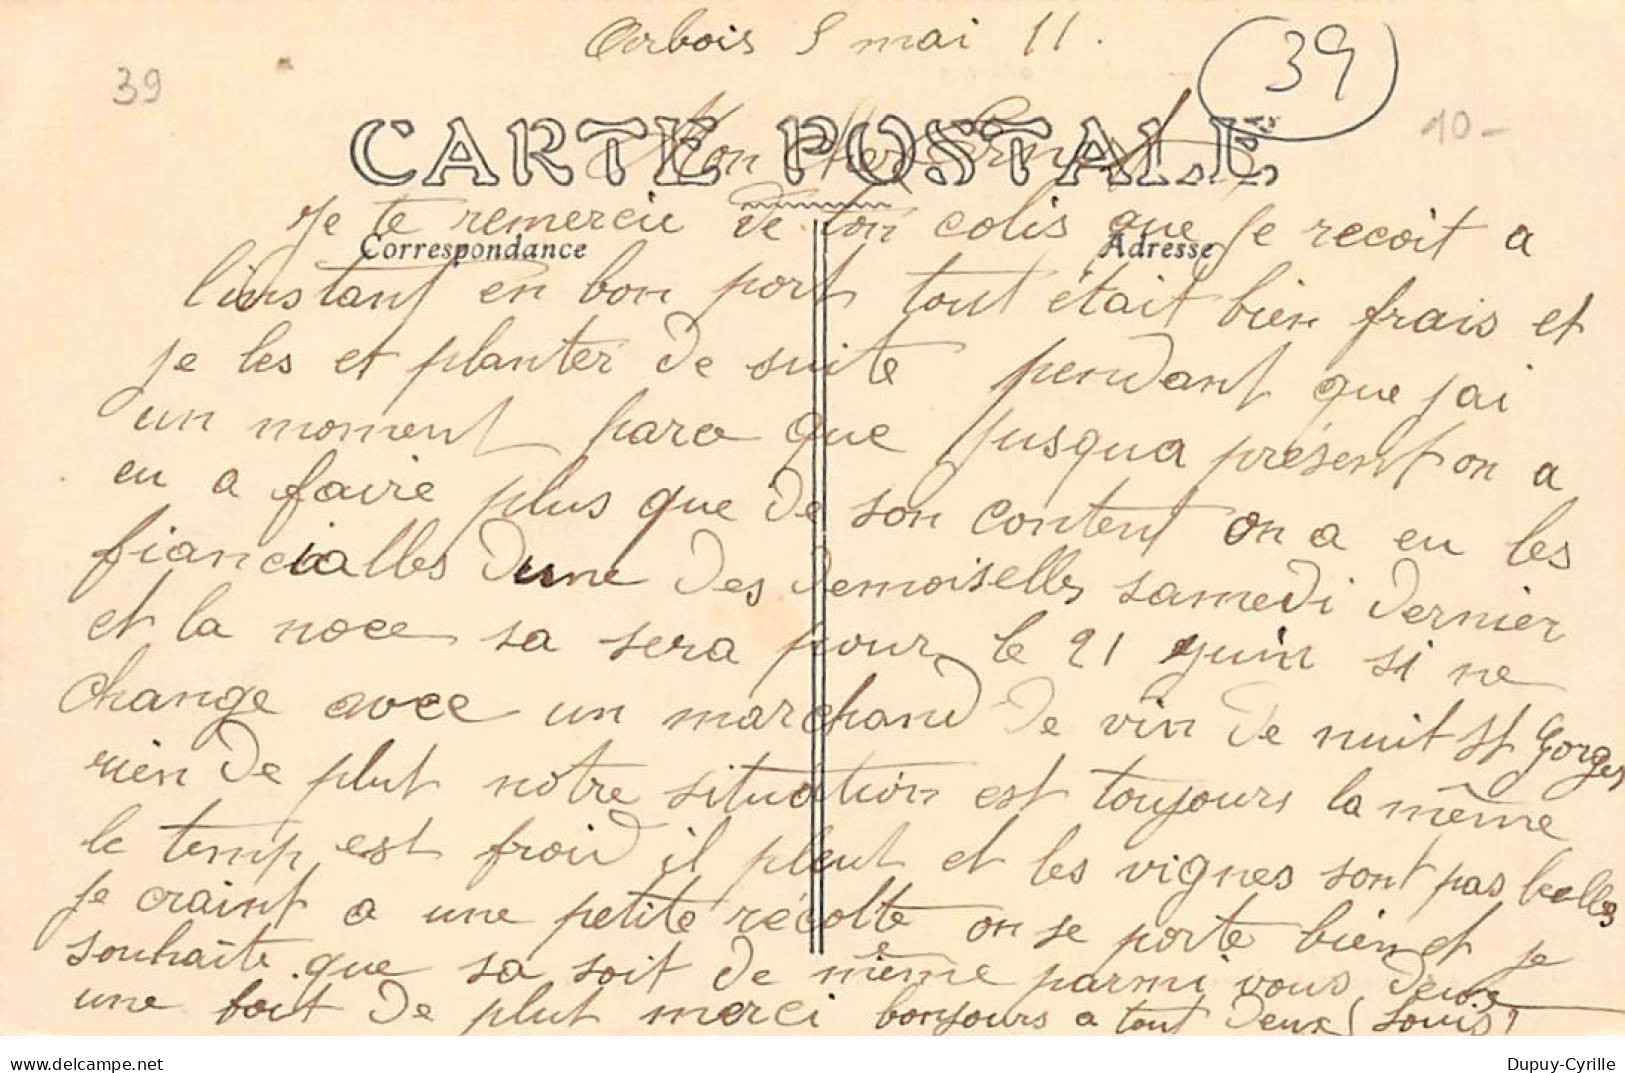 Arbois 5 mai 11.
39
39
10-
CARTE POSTALE
Mon cher Ernest
Correspondance
Adresse
Je te remercie de ton colis que je recoit a
l'instant en bon port tout était bien frais et
je les et planter de suite pendant que j'ai
un moment parce que jusqua présent on a
eu a faire plus que de son content on a eu les
fiancialles dune des demoiselles samedi dernier
et la noce sa sera pour le 21 juin si ne
change avec un marchand de vin de nuit St Gorges
rien de plut notre situation est toujours la même
le temp est froid il pleut et les vignes sont pas belles
je craint a une petite récolte on se porte bien et je
souhaite que sa soit de même parmi vous deux
une foit de plut merci bonjours a tout deux (Louis)
delcampe.net
Dupuy-Cyrille